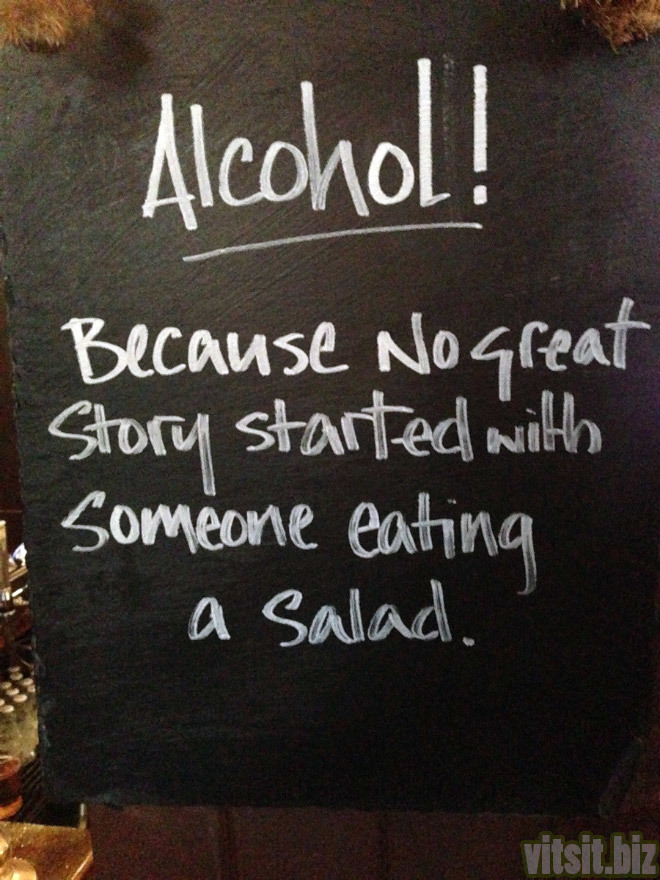 Alcohol!
Because No great
Story started with
Someone eating
a salad.
vitsit.biz